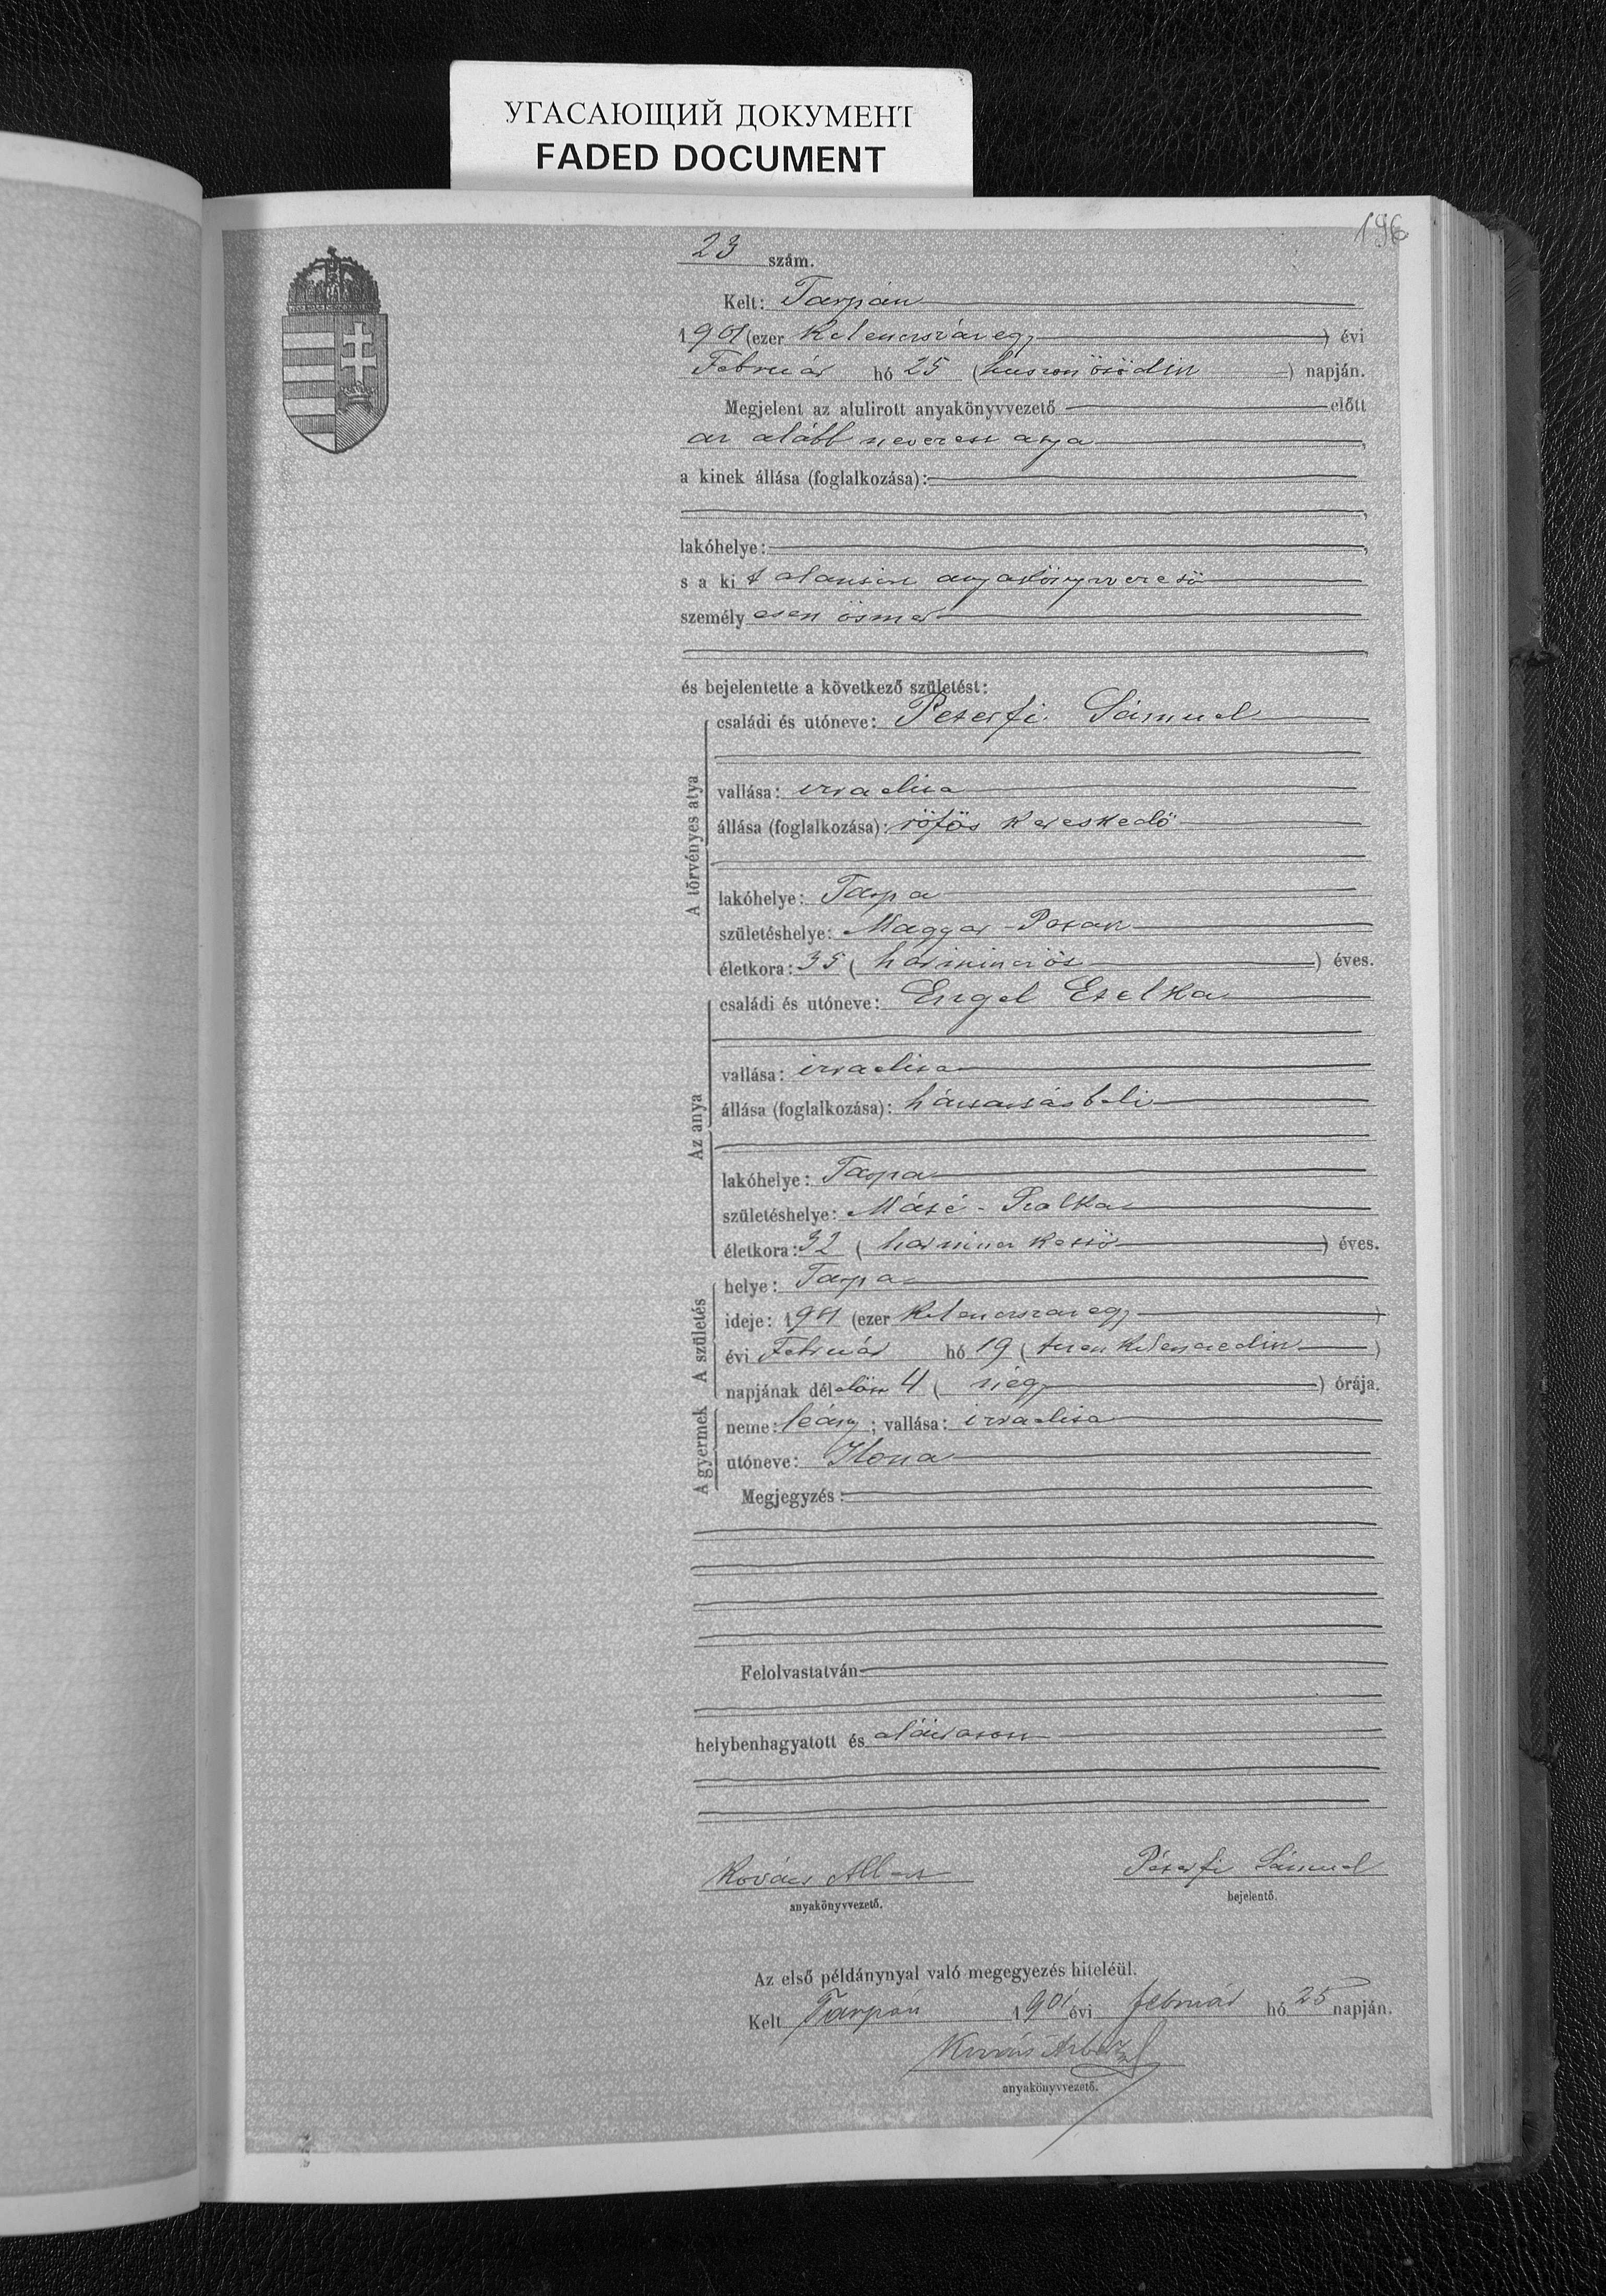 УГАСАЮЩИЙ ДОКУМЕНТ
FADED DOCUMENT
196
23 szám.
Kelt: Tarpán
1901 (ezer kilenczszáz egy) évi
Február hó 25 (huszonötödik) napján.
Megjelent az alulirott anyakönyvvezető előtt
az alább nevezett atya,
a kinek állása (foglalkozása):
lakóhelye:
s a kit alantirt anyakönyvvezető
személyesen ösmer
és bejelentette a következő születést:
A törvényes atya
családi és utóneve: Péterfi Sámuel
vallása: izraelita
állása (foglalkozása): rőfös kereskedő
lakóhelye: Tarpa
születéshelye: Magyar-
életkora: 35 (harminczöt) éves.
Az anya
családi és utóneve: Engel Etelka
vallása: izraelita
állása (foglalkozása): háztartásbeli
lakóhelye: Tarpa
születéshelye: Máté-Szalka
életkora: 32 (harmincz kettő) éves.
A születés
helye: Tarpa
ideje: 1901 (ezer kilenczszáz egy)
évi Február hó 19 (tizen kilenczedik)
napjának délelőtt 4 (négy) órája.
A gyermek
neme: leány; vallása: izraelita
utóneve: Ilona
Megjegyzés:
Felolvastatván
helybenhagyatott és aláíratott
Kovács Albert
anyakönyvvezető.
Péterfi Sámuel
bejelentő.
Az első példánynyal való megegyezés hiteléül.
Kelt Tarpán 1901 évi február hó 25 napján.
Kovács Albert
anyakönyvvezető.